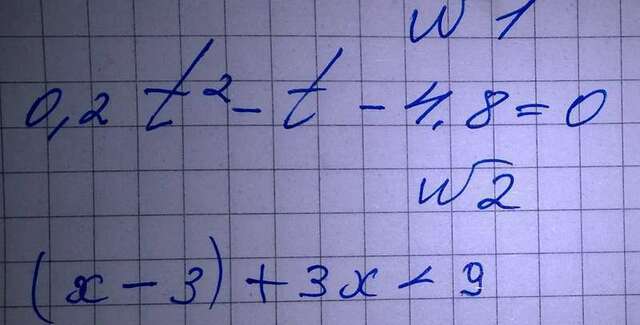 №1
0,2 t² - t - 4,8 = 0
№2
(x - 3) + 3x < 9